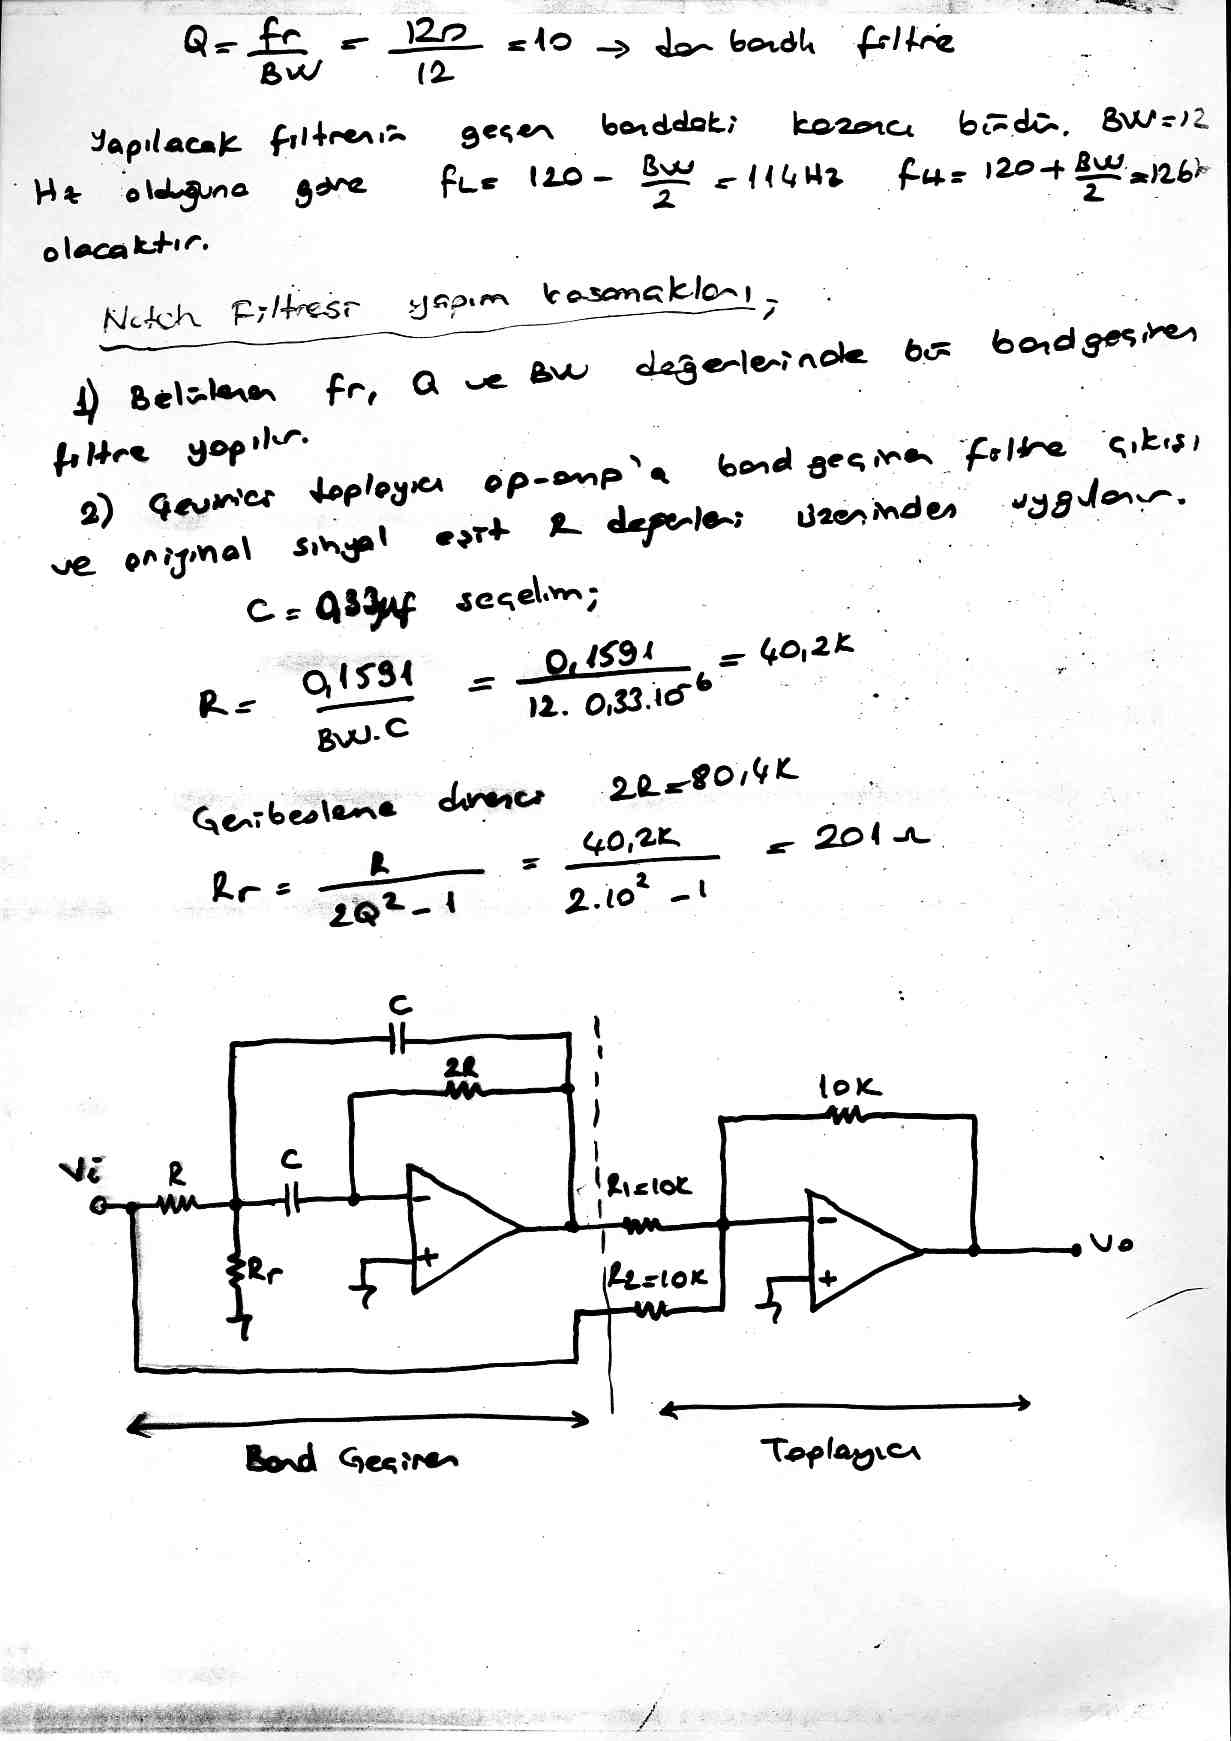 Q = fr/BW = 120/12 = 10 → dar bandlı filtre
Yapılacak filtrenin geçen banddaki kazancı birdir. BW=12
Hz olduğuna göre fL = 120 - BW/2 = 114Hz fH = 120 + BW/2 = 126
olacaktır.
Notch Filtresi yapım basamakları;
1) Belirlenen fr, Q ve BW değerlerinde bir bandgeçiren
filtre yapılır.
2) Çevirici toplayıcı op-amp'a band geçiren filtre çıkışı
ve orijinal sinyal eşit R değerleri üzerinden uygulanır.
C = 0,33µf seçelim;
R = 0,1591/BW.C = 0,1591/12. 0,33.10⁻⁶ = 40,2K
Geribesleme direnci 2R = 80,4K
Rr = R/2Q² - 1 = 40,2K/2.10² - 1 = 201 Ω
C
2R
10K
Vi R C
- R1=10K
-
Vo
+
Rr
R2=10K
+
Band Geçiren
Toplayıcı